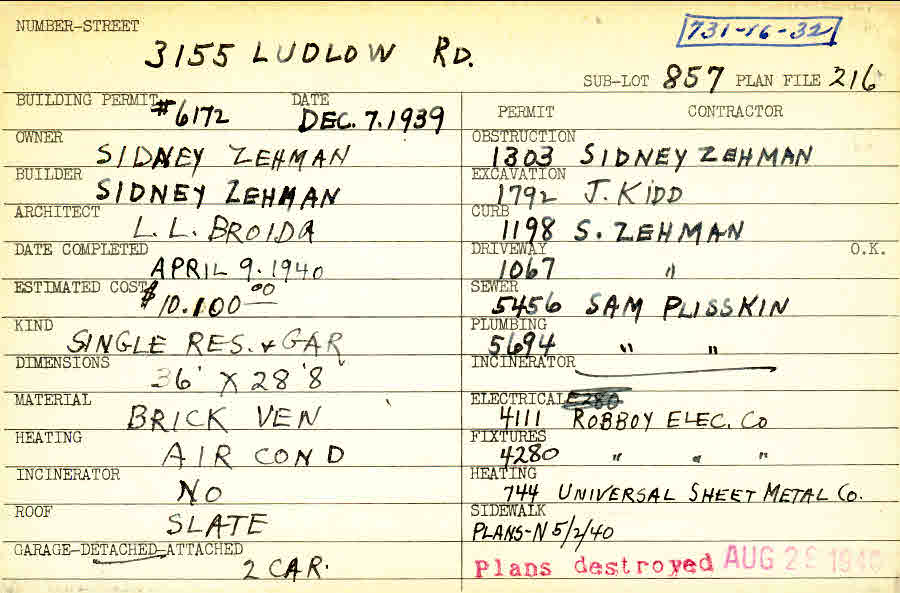 NUMBER-STREET
731-16-32
3155 LUDLOW RD.
SUB-LOT 857 PLAN FILE 216
BUILDING PERMIT #6172 DATE DEC. 7. 1939
PERMIT CONTRACTOR
OWNER SIDNEY ZEHMAN
OBSTRUCTION 1303 SIDNEY ZEHMAN
BUILDER SIDNEY ZEHMAN
EXCAVATION 1792 J. KIDD
ARCHITECT L. L. BROIDA
CURB 1198 S. ZEHMAN
DATE COMPLETED APRIL 9. 1940
DRIVEWAY O.K. 1067 "
ESTIMATED COST $10.100 00
SEWER 5456 SAM PLISSKIN
KIND SINGLE RES. + GAR
PLUMBING 5694 " "
DIMENSIONS 36' X 28'8
INCINERATOR
MATERIAL BRICK VEN
ELECTRICAL 4111 ROBBOY ELEC. CO
HEATING AIR COND
FIXTURES 4280 " " "
INCINERATOR NO
HEATING 744 UNIVERSAL SHEET METAL CO.
ROOF SLATE
SIDEWALK
PLANS-N 5/2/40
GARAGE-DETACHED-ATTACHED 2 CAR.
Plans destroyed AUG 28